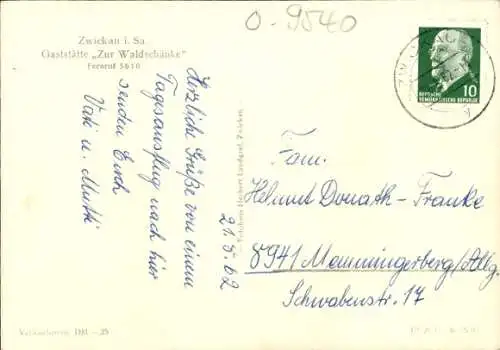 O-9540
Zwickau i. Sa.
Gaststätte „Zur Waldschänke"
Fernruf 5610
Herzliche Grüße von einem
Tagesausflug nach hier
senden Euch
Vati u. Mutti
21.5.62
ZWICKAU
10
DEUTSCHE
DEMOKRATISCHE REPUBLIK
Fam.
Helmut Donath-Franke
8941 Memmingerberg/Allg.
Schwabenstr. 17
Herbert Landgraf, Zwickau